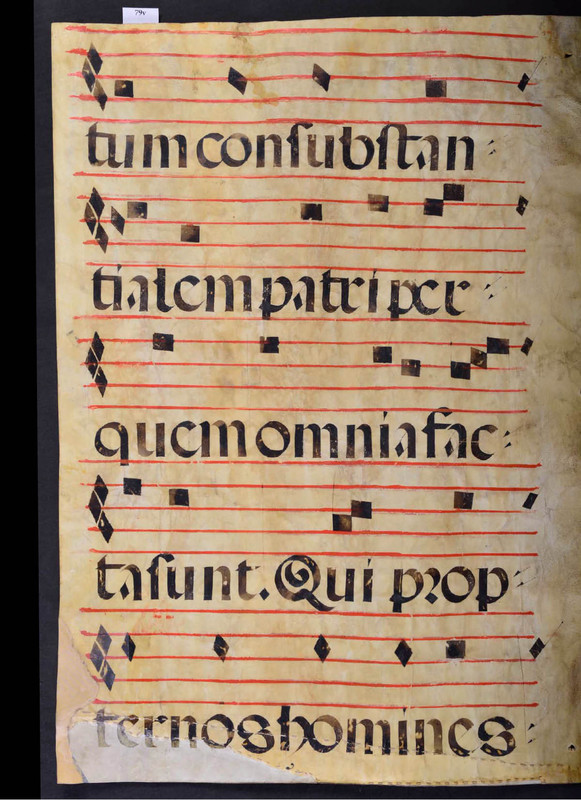 tum consubstan
tialem patri per
quem omnia fac
ta sunt. Qui prop
ter nos homines